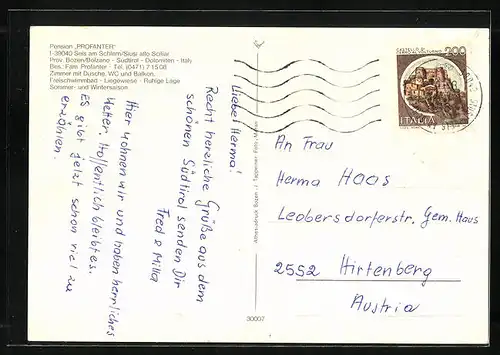 Pension „PROFANTER"
I-39040 Seis am Schlern/Siusi allo Sciliar
Prov. Bozen/Bolzano - Südtirol - Dolomiten - Italy
Bes.: Fam. Profanter - Tel. (0471) 71508
Zimmer mit Dusche, WC und Balkon.
Freischwimmbad - Liegewiese - Ruhige Lage
Sommer- und Wintersaison
Liebe Herma!
Recht herzliche Grüße aus dem
schönen Südtirol senden Dir
Fred & Milla
Hier wohnen wir und haben herrliches
Wetter. Hoffentlich bleibt es.
Es gibt jetzt schon viel zu
erzählen.
30007
200
ITALIA
An Frau
Herma Haas
Leobersdorferstr. Gem. Haus
2552 Hirtenberg
Austria